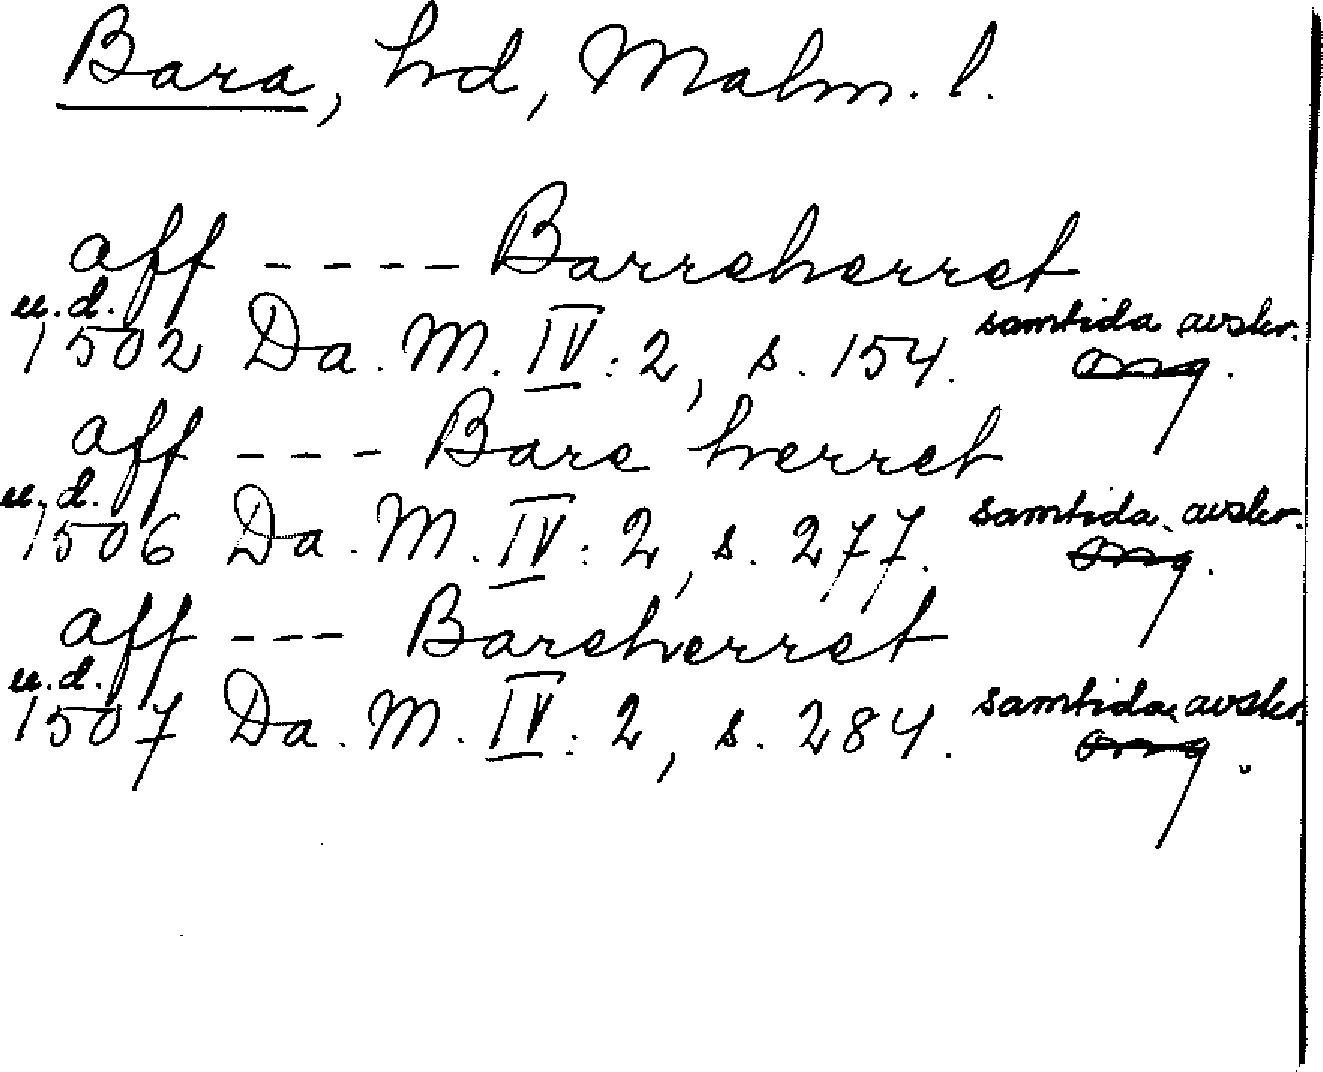 Bara, hd, Malm. l.
aff ---- Barreherret
u.d. samtida avskr.
1502 Da. M. IV: 2, s. 154. orig.
aff --- Bare herret
u.d. samtida avskr.
1506 Da. M. IV: 2, s. 277. orig.
aff --- Bareherret
u.d. samtida avskr.
1507 Da. M. IV: 2, s. 284. orig.